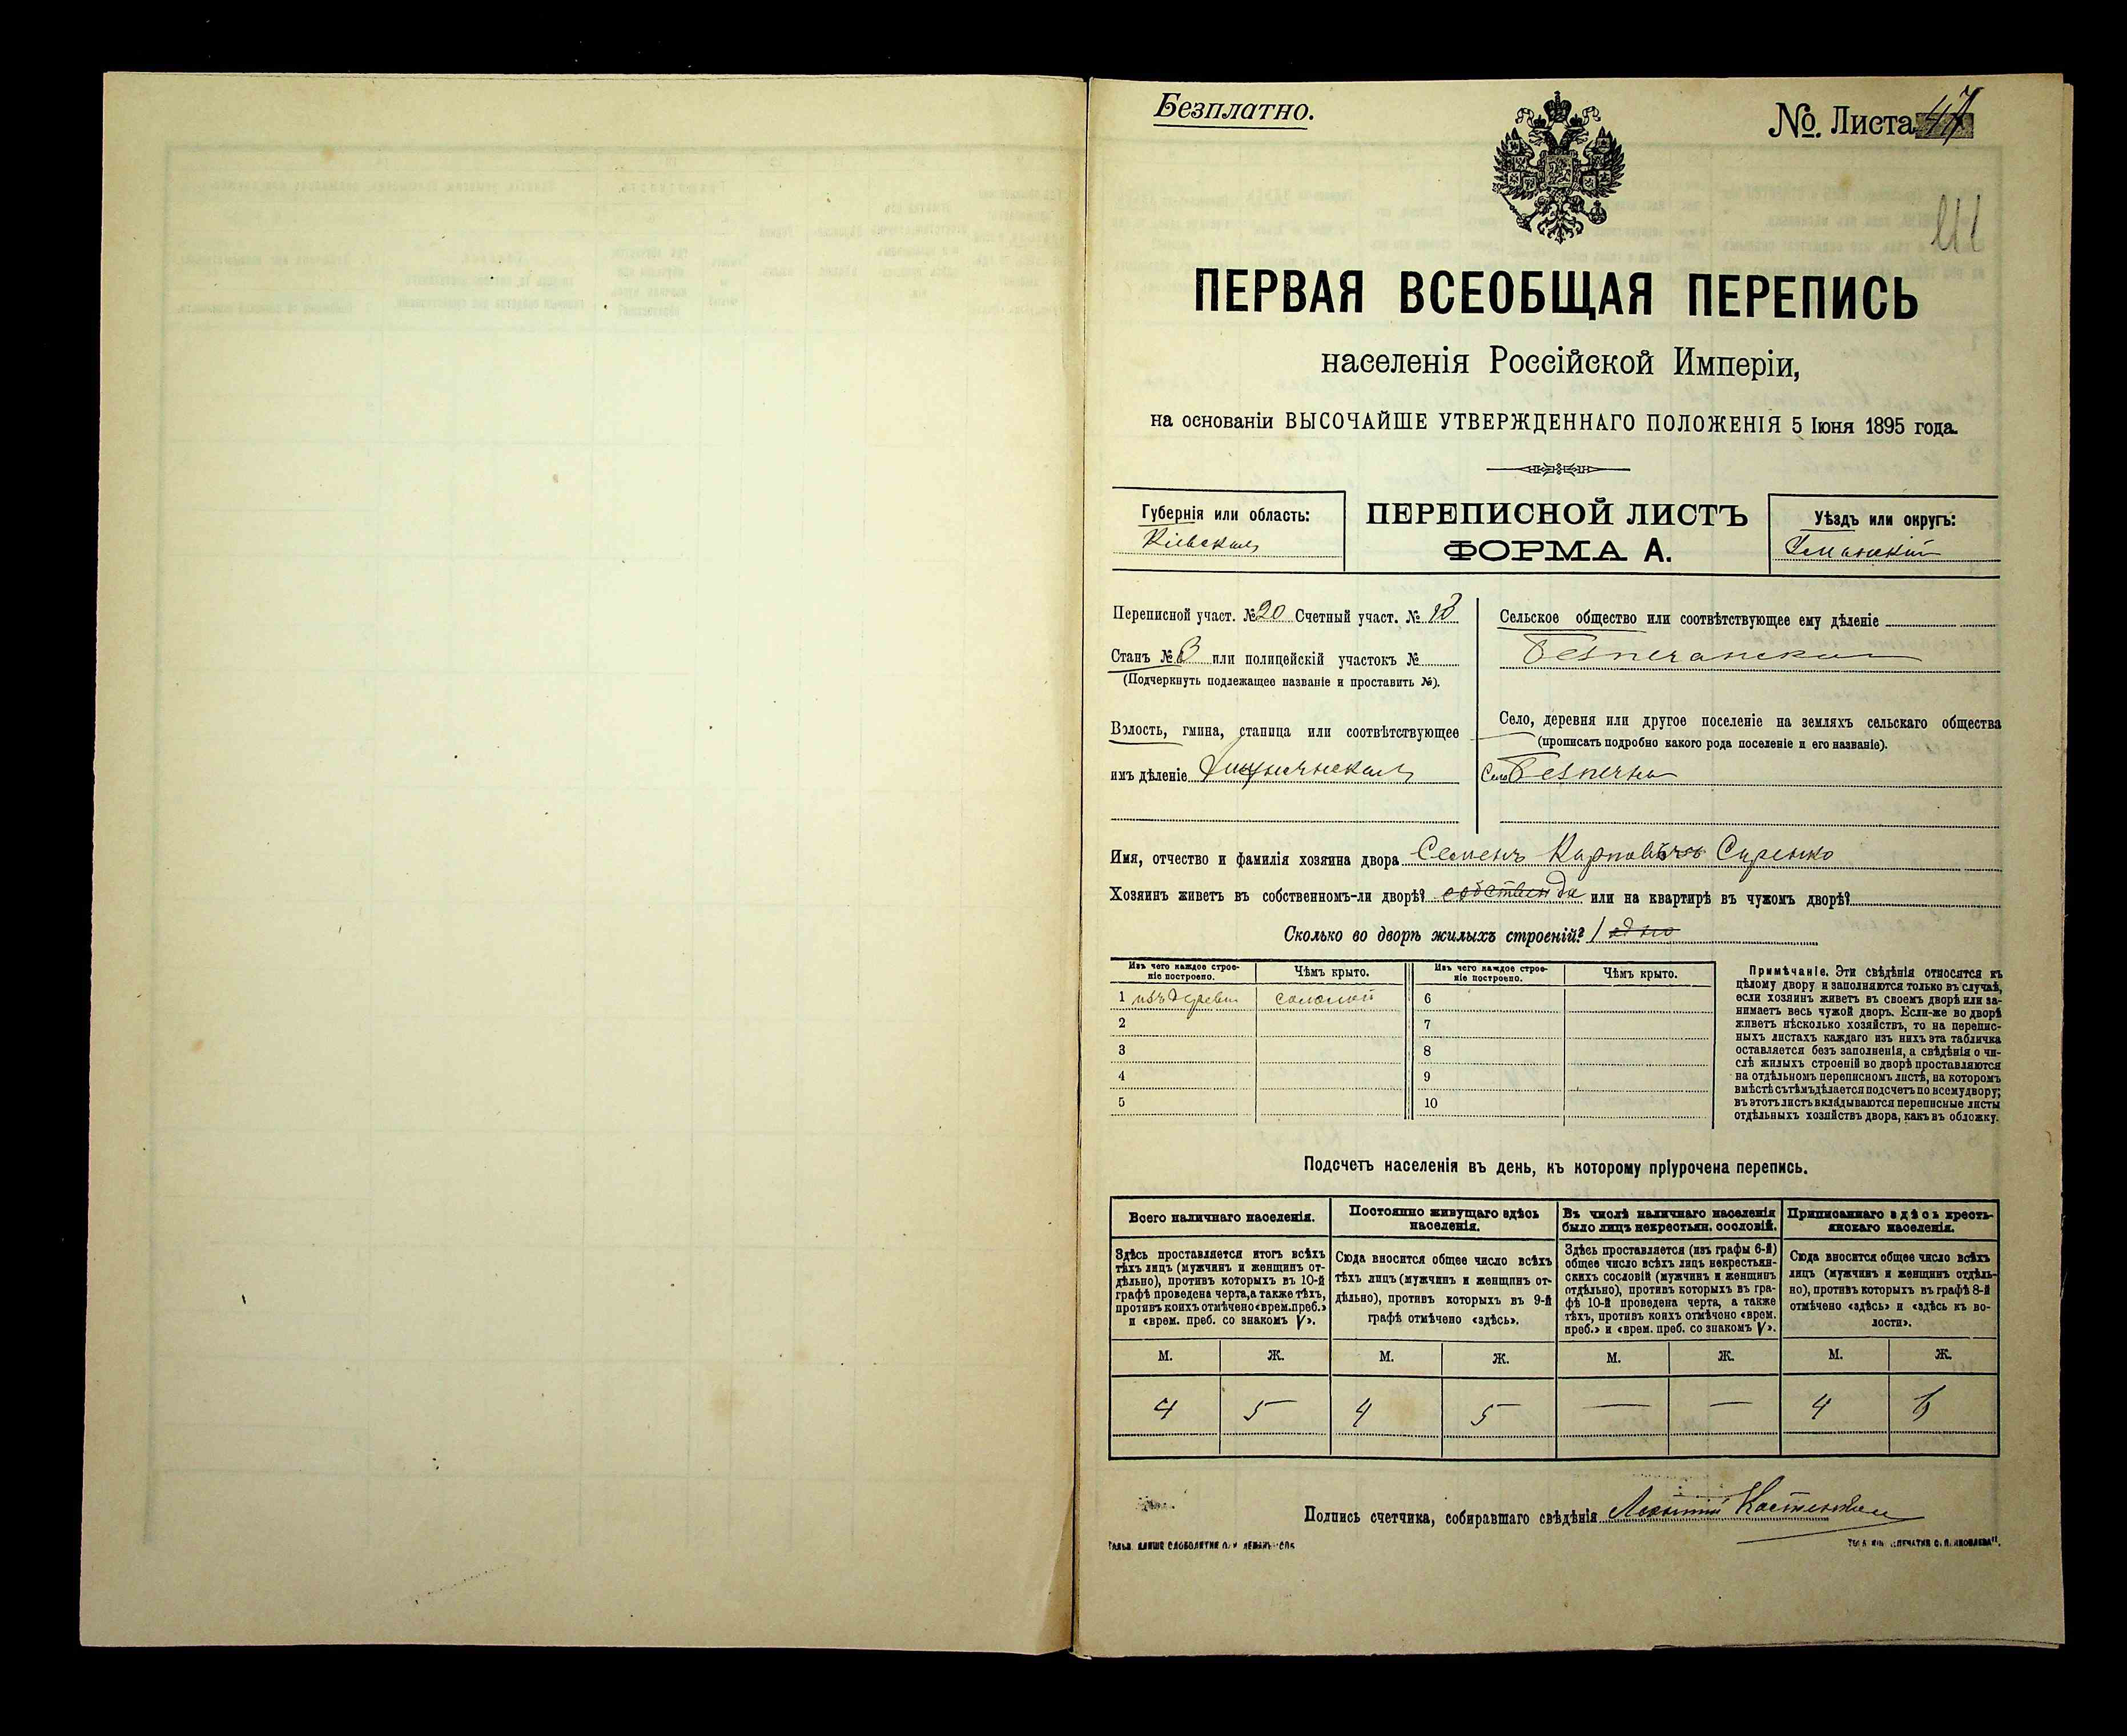 Безплатно.
№ Листа 47
ПЕРВАЯ ВСЕОБЩАЯ ПЕРЕПИСЬ
населенія Россійской Имперіи,
на основаніи ВЫСОЧАЙШЕ УТВЕРЖДЕННАГО ПОЛОЖЕНІЯ 5 Іюня 1895 года.
Губернія или область:
Кіевская
ПЕРЕПИСНОЙ ЛИСТЪ
ФОРМА А.
Уѣздъ или округъ:
Уманскій
Переписной участ. № 20 Счетный участ. №
Станъ № 3 или полицейскій участокъ №
(Подчеркнуть подлежащее названіе и проставить №).
Волость, гмина, станица или соотвѣтствующее
имъ дѣленіе
Сельское общество или соотвѣтствующее ему дѣленіе
Безпечанское
Село, деревня или другое поселеніе на земляхъ сельскаго общества
(прописать подробно какого рода поселеніе и его названіе).
Село Безпечна
Имя, отчество и фамилія хозяина двора Семенъ Карповичъ Сиренко
Хозяинъ живетъ въ собственномъ-ли дворѣ? собствен да или на квартирѣ въ чужомъ дворѣ?
Сколько во дворѣ жилыхъ строеній? 1 одно
Изъ чего каждое строе-
ніе построено.
Чѣмъ крыто.
Изъ чего каждое строе-
ніе построено.
Чѣмъ крыто.
1 изъ дерева соломой 6
2 7
3 8
4 9
5 10
Примѣчаніе. Эти свѣдѣнія относятся къ
цѣлому двору и заполняются только въ случаѣ,
если хозяинъ живетъ въ своемъ дворѣ или за-
нимаетъ весь чужой дворъ. Если-же во дворѣ
живетъ нѣсколько хозяйствъ, то на перепис-
ныхъ листахъ каждаго изъ нихъ эта табличка
оставляется безъ заполненія, а свѣдѣнія о чи-
слѣ жилыхъ строеній во дворѣ проставляются
на отдѣльномъ переписномъ листѣ, на которомъ
вмѣстѣ съ тѣмъ дѣлается подсчетъ по всему двору;
въ этотъ листъ вкладываются переписные листы
отдѣльныхъ хозяйствъ двора, какъ въ обложку.
Подсчетъ населенія въ день, къ которому пріурочена перепись.
Всего наличнаго населенія.
Постоянно живущаго здѣсь
населенія.
Въ числѣ наличнаго населенія
было лицъ некрестьян. сословій.
Приписаннаго здѣсь кресть-
янскаго населенія.
Здѣсь проставляется итогъ всѣхъ
тѣхъ лицъ (мужчинъ и женщинъ от-
дѣльно), противъ которыхъ въ 10-й
графѣ проведена черта, а также тѣхъ,
противъ коихъ отмѣчено «врем. преб.»
и «врем. преб. со знакомъ V».
Сюда вносится общее число всѣхъ
тѣхъ лицъ (мужчинъ и женщинъ от-
дѣльно), противъ которыхъ въ 9-й
графѣ отмѣчено «здѣсь».
Здѣсь проставляется (изъ графы 6-й)
общее число всѣхъ лицъ некрестьян-
скихъ сословій (мужчинъ и женщинъ
отдѣльно), противъ которыхъ въ гра-
фѣ 10-й проведена черта, а также
тѣхъ, противъ коихъ отмѣчено «врем.
преб.» и «врем. преб. со знакомъ V».
Сюда вносится общее число всѣхъ
лицъ (мужчинъ и женщинъ отдѣль-
но), противъ которыхъ въ графѣ 8-й
отмѣчено «здѣсь» и «здѣсь къ во-
лости».
М. Ж. М. Ж. М. Ж. М. Ж.
4 5 4 5 — — 4 5
Подпись счетчика, собиравшаго свѣдѣнія